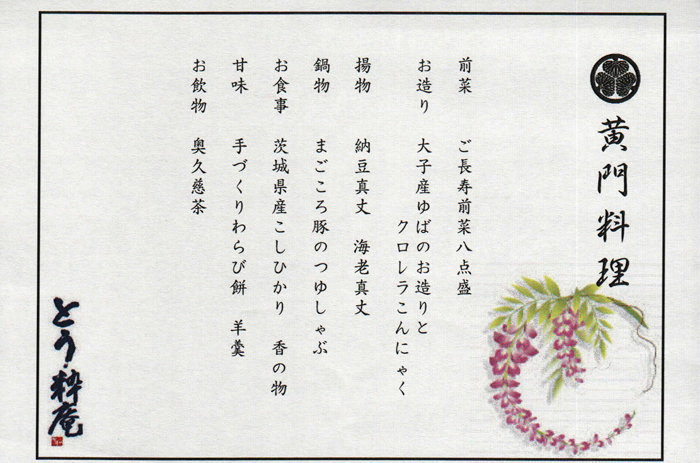 黄門料理
前菜 ご長寿前菜八点盛
お造り 大子産ゆばのお造りと
クロレラこんにゃく
揚物 納豆真丈 海老真丈
鍋物 まごころ豚のつゆしゃぶ
お食事 茨城県産こしひかり 香の物
甘味 手づくりわらび餅 羊羹
お飲物 奥久慈茶
とう粋庵